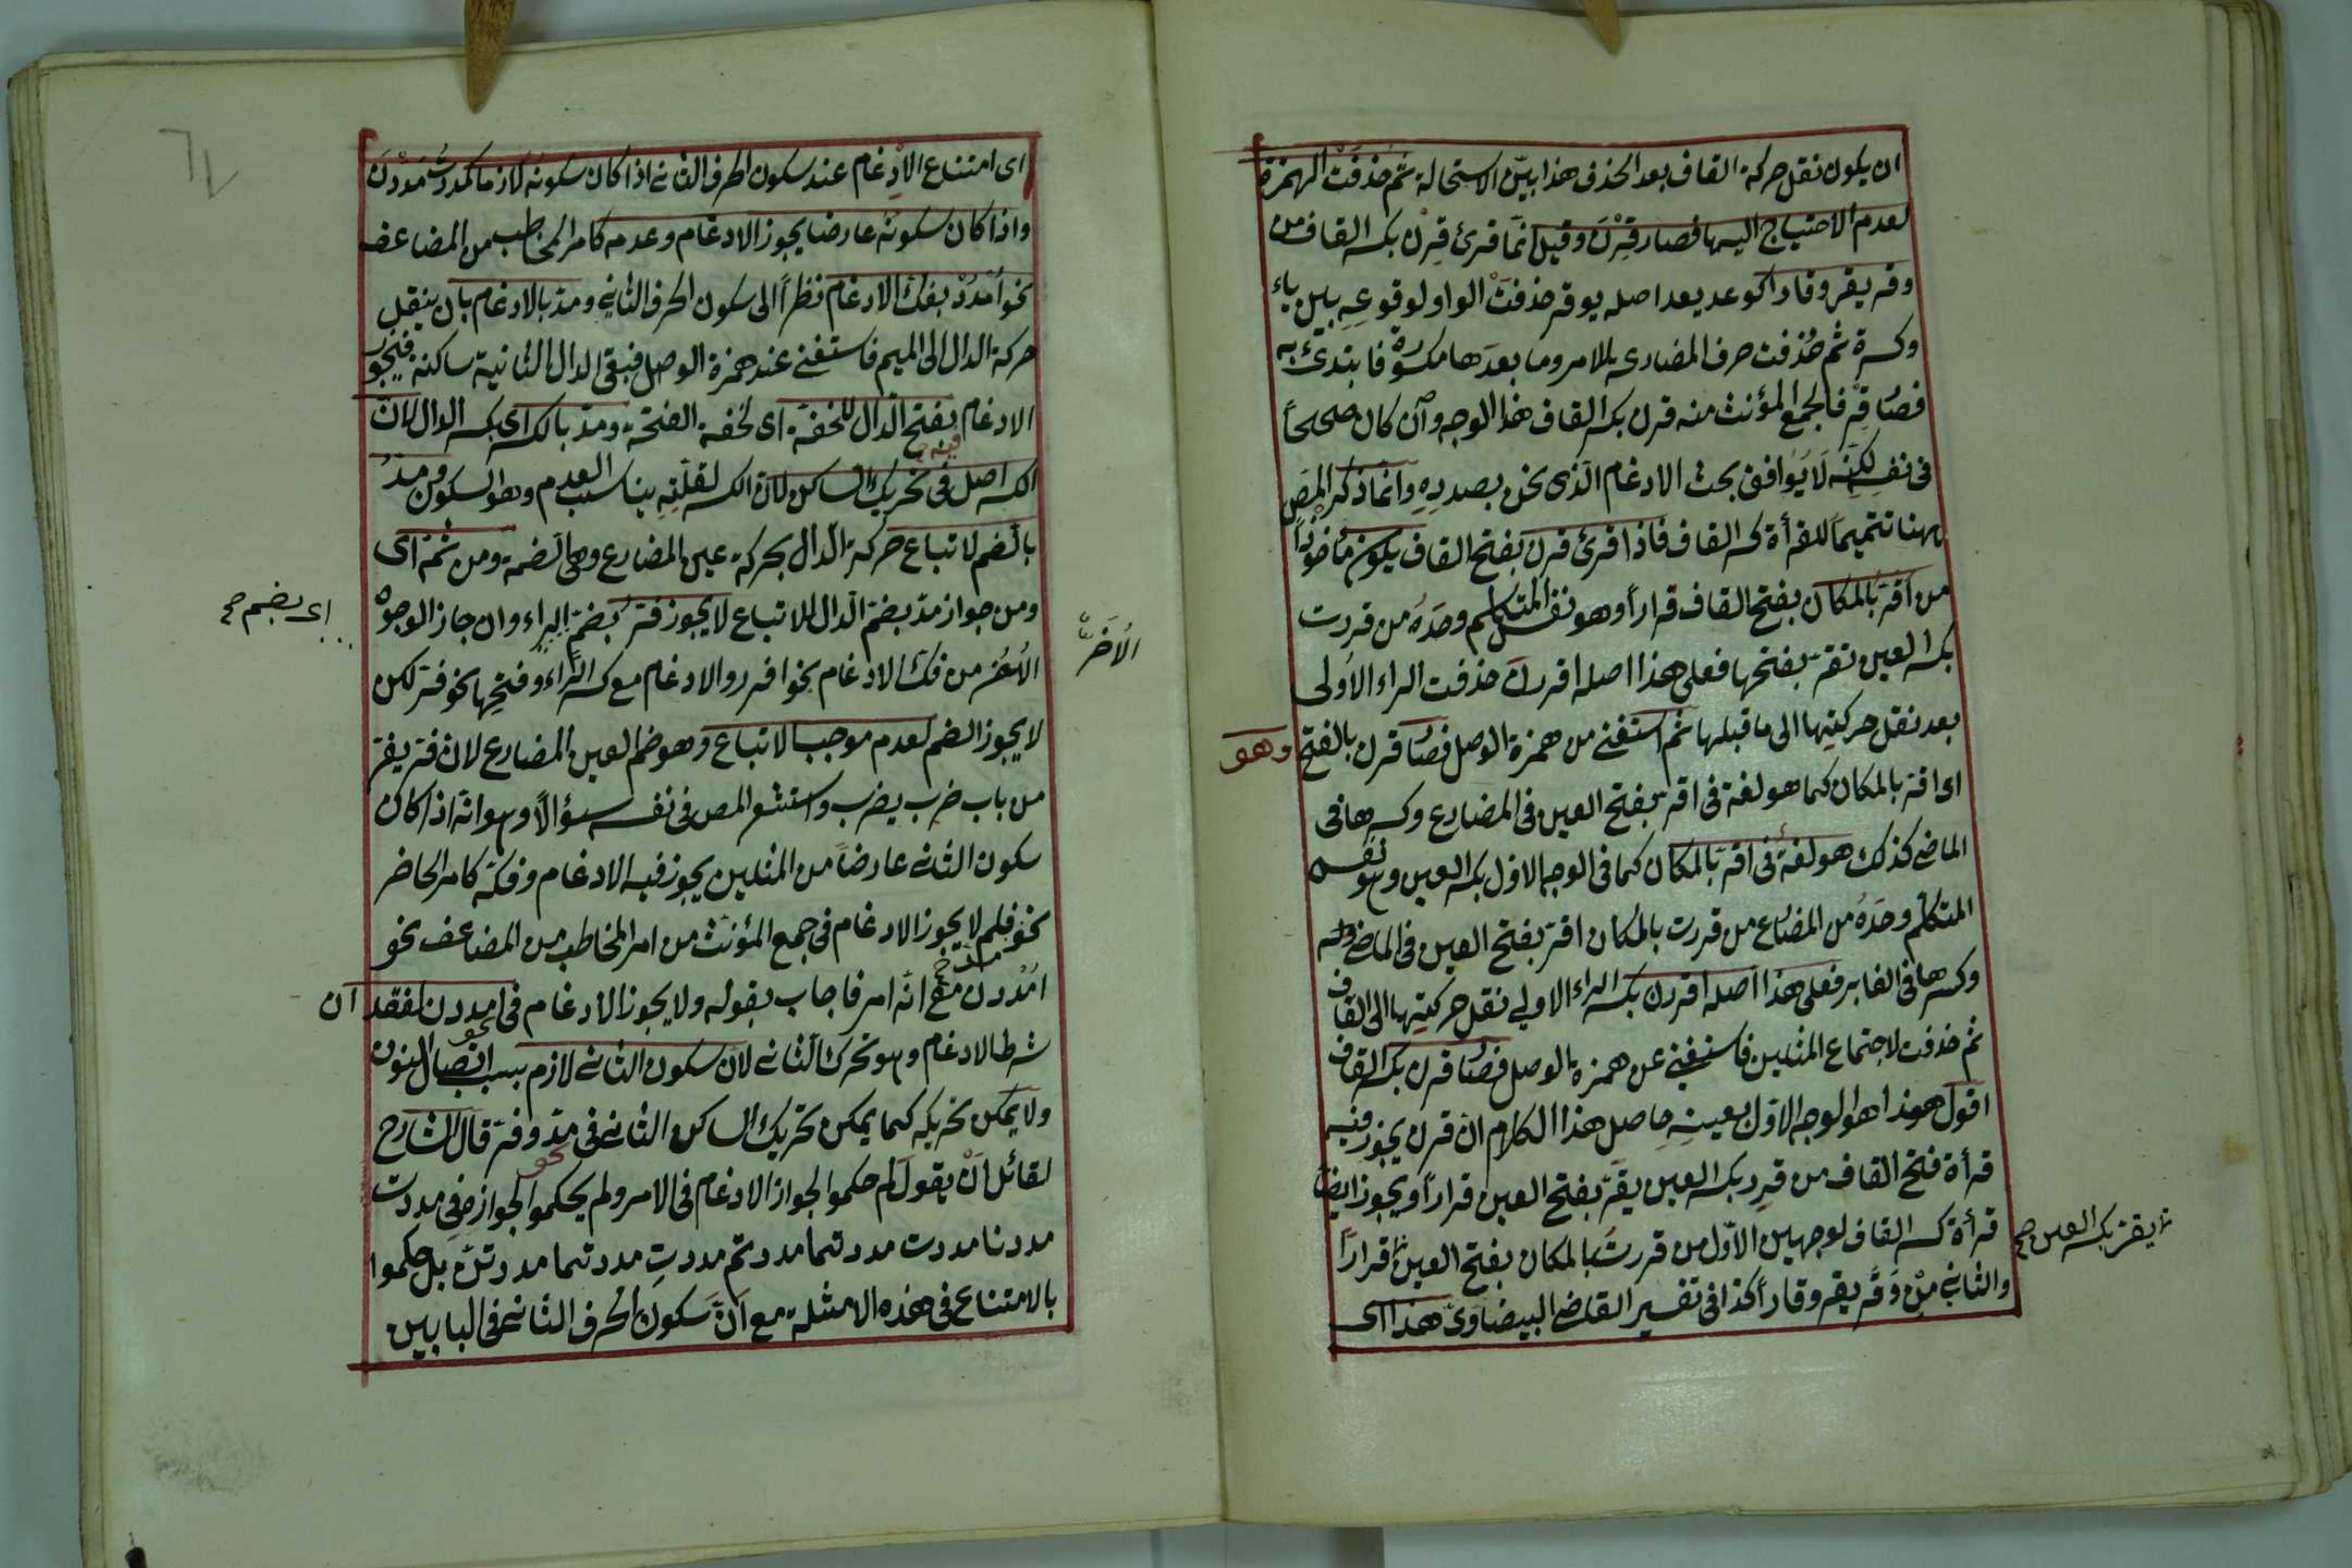 ان يكون نقل حركة القاف بعد الحذف هذا بيّن الاستحالة ثم حذفت الهمزة
لعدم الاحتياج اليها فصار قِرْنَ وقيل انما قرئ قِرن بكسر القاف من
وقر يقر وقارا كوعد يعد اصله يوقر حذفت الواو لوقوعه بين ياء
وكسرة ثم حُذفت حرف المضارعة للامر وما بعدها مكسورة فابتدئ به
فصار قِرْ فالجمع المؤنث منه قرن بكسر القاف هذا الوجه وان كان صحيحاً
فى نفسه لكنّه لا يُوافق بحث الادغام الّذى نحن بصدده وانما ذكر المص
ههنا تتميماً للقرأة كسر القاف فاذا قرئ قرن بفتح القاف يكون مأخوذاً
من اقرّ بالمكان بفتح القاف قراراً وهو نفس المتكلم وحدهُ من قررت
بكسر العين تقرّ بفتحها فعلى هذا اصله اقررن حذفت الراء الاُولى
بعد نقل حركتِها الى ما قبلها ثم استغنى من همزة الوصل فصار قرن بالفتح وهو
اى اقرّ بالمكان كما هو لغة فى اقرّ بفتح العين فى المضارع وكسرها فى
الماضى كذلك هو لغة فى اقرّ بالمكان كما فى الوجه الاول بكسر العين وهو نفس
المتكلم وحدهُ من المضارع من قررت بالمكان اقرّ بفتح العين فى الماضى
وكسرها فى الغابر فعلى هذا اصله اقررن بكسر الراء الاولى نقل حركتِها الى القاف
ثم حذفت لاجتماع المثلين فاستغنى عن همزة الوصل فصار قرن بكسر القاف
اقول هذا هو الوجه الاوّل بعينهِ حاصل هذا الكلام انّ قرن يجوز فيه
قرأة فتح القاف من قرِر بكسر العين يقرّ بفتح العين قراراً ويجوز ايضاً
قرأة كسر القاف لوجهين الاوّل من قررت بالمكان بفتح العين قراراً
يقرّ بكسر العين صح
والثانى مِنْ وَقَرَ يقر وقاراً كذا فى تفسير القاضى البيضاوىّ هذا اى
اى امتناع الاِدغام عند سكون الحرف الثانى اذا كان سكونه لازما كمددتُ مددن
واذا كان سكونه عارضا يجوز الادغام وعدمه كامر المخاطب من المضاعف
نحو اُمْدُدْ بفكّ الادغام نظراً الى سكون الحرف الثانى ومدّ بالادغام بان ينقل
حركة الدال الى الميم فاستغنى عند همزة الوصل فبقى الدال الثانية ساكنة فيجوز
الادغام بفتح الدال للخفة اى لخفة الفتحة ومدّ بالكسر اى بكسر الدال لانّ
الكسر اصل فى تحريك الساكن لانّ الكسر لقلّتِهِ يناسب العدم وهو السكون مدّ
بالضم لاتباع حركة الدال بحركة عين المضارع وهى الضمة ومن ثمة اى
ومن جواز مدّ بضم الدال للاتباع لا يجوز فرّ بضمّ الراء وان جاز الوجوه
اى بضم صح
الاُخَر من فكّ الادغام نحو افرر والادغام مع كسر الراء وفتحها نحو فرّ لكن
الاُخَر
لا يجوز الضم لعدم موجب الاتباع وهو ضم العين المضارع لان فرّ يفرّ
من باب ضرب يضرب واستشعر المص فى نفسه سؤالاً وهو انّه اذا كان
سكون الثانى عارضاً من المثلين يجوز فيه الادغام وفكّه كامر الحاضر
نحو فلم لا يجوز الادغام فى جمع المؤنث من امر المخاطب من المضاعف نحو
اُمْدُدن مع انّه امر فاجاب بقوله ولا يجوز الادغام فى امددن لفقدان
شرط الادغام وهو تحرك الثانى لانّ سكون الثانى لازم بسبب اتصال النون
ولا يمكن تحريكه كما يمكن تحريك الساكن الثانى فى مدّ وفرّ قال الشارح
لقائل اَنْ يقول لم حكموا الجواز الادغام فى الامر ولم يحكموا الجواز فى نحو مددت
مددنا مددت مددتما مددتم مددتِ مددتما مددتنّ بل حكموا
بالامتناع فى هذه الامثلة مع اَنّ سكون الحرف الثانى فى البابين